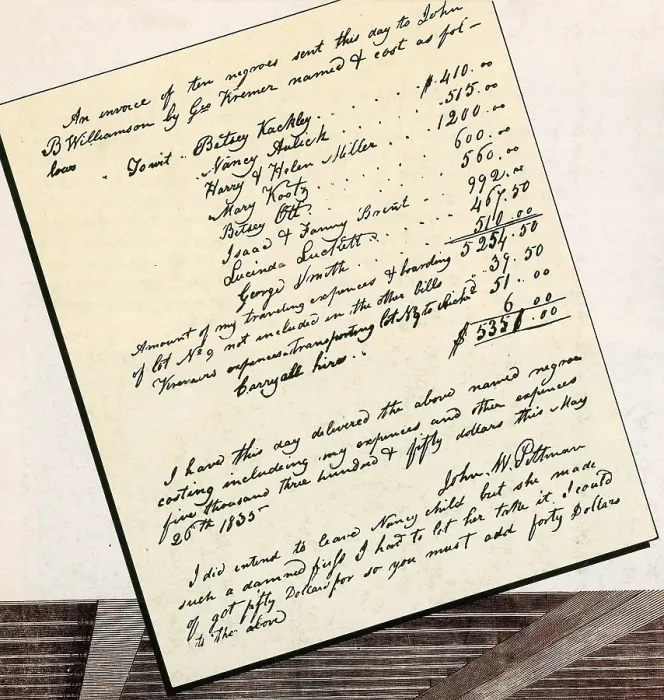 An invoice of ten negroes sent this day to John
B Williamson by Geo Kremer named & cost as fol-
lows . To wit . Betsey Kackley . . . . $ 410.00
Nancy Aulick . . . . 515.00
Harry & Helen Miller . . . 1200.00
Mary Kootz . . . . 600.00
Betsey Ott . . . . 560.00
Isaac & Fanny Brent . . 992.00
Lucinda Luckett . . . . 467.50
George Smith . . . . 510.00
Amount of my traveling expences & boarding 5254.50
of lot No 9 not included in the other bills .. 39.50
expences transporting lot to 51.00
Carryall hire . . 6.00
$ 5351.00
I have this day delivered the above named negroes
costing including my expences and other expences
five thousand three hundred & fifty dollars this May
26th 1835
John W. Pittman
I did intend to leave Nancy child but she made
such a damned fuss I had to let her take it I could
of got fifty Dollars for so you must add forty Dollars
to the above